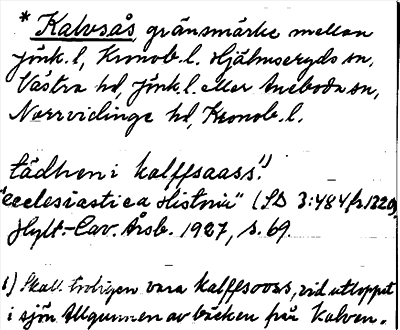 * Kalvsås gränsmärke mellan
Jönk.l, Kronob.l. Hjälmseryds sn,
Västra hd, Jönk.l. eller Aneboda sn,
Norrvidinge hd, Kronob.l.
tädhen i kalffsaass¹⁾
"ecclesiastica Historii" (SD 3:484 fr. 1320),
Hylt-Cav. Årsb. 1927, s. 69.
1) Skall troligen vara kalffsooss, vid utloppet
i sjön Allgunnen av bäcken från Kalven.